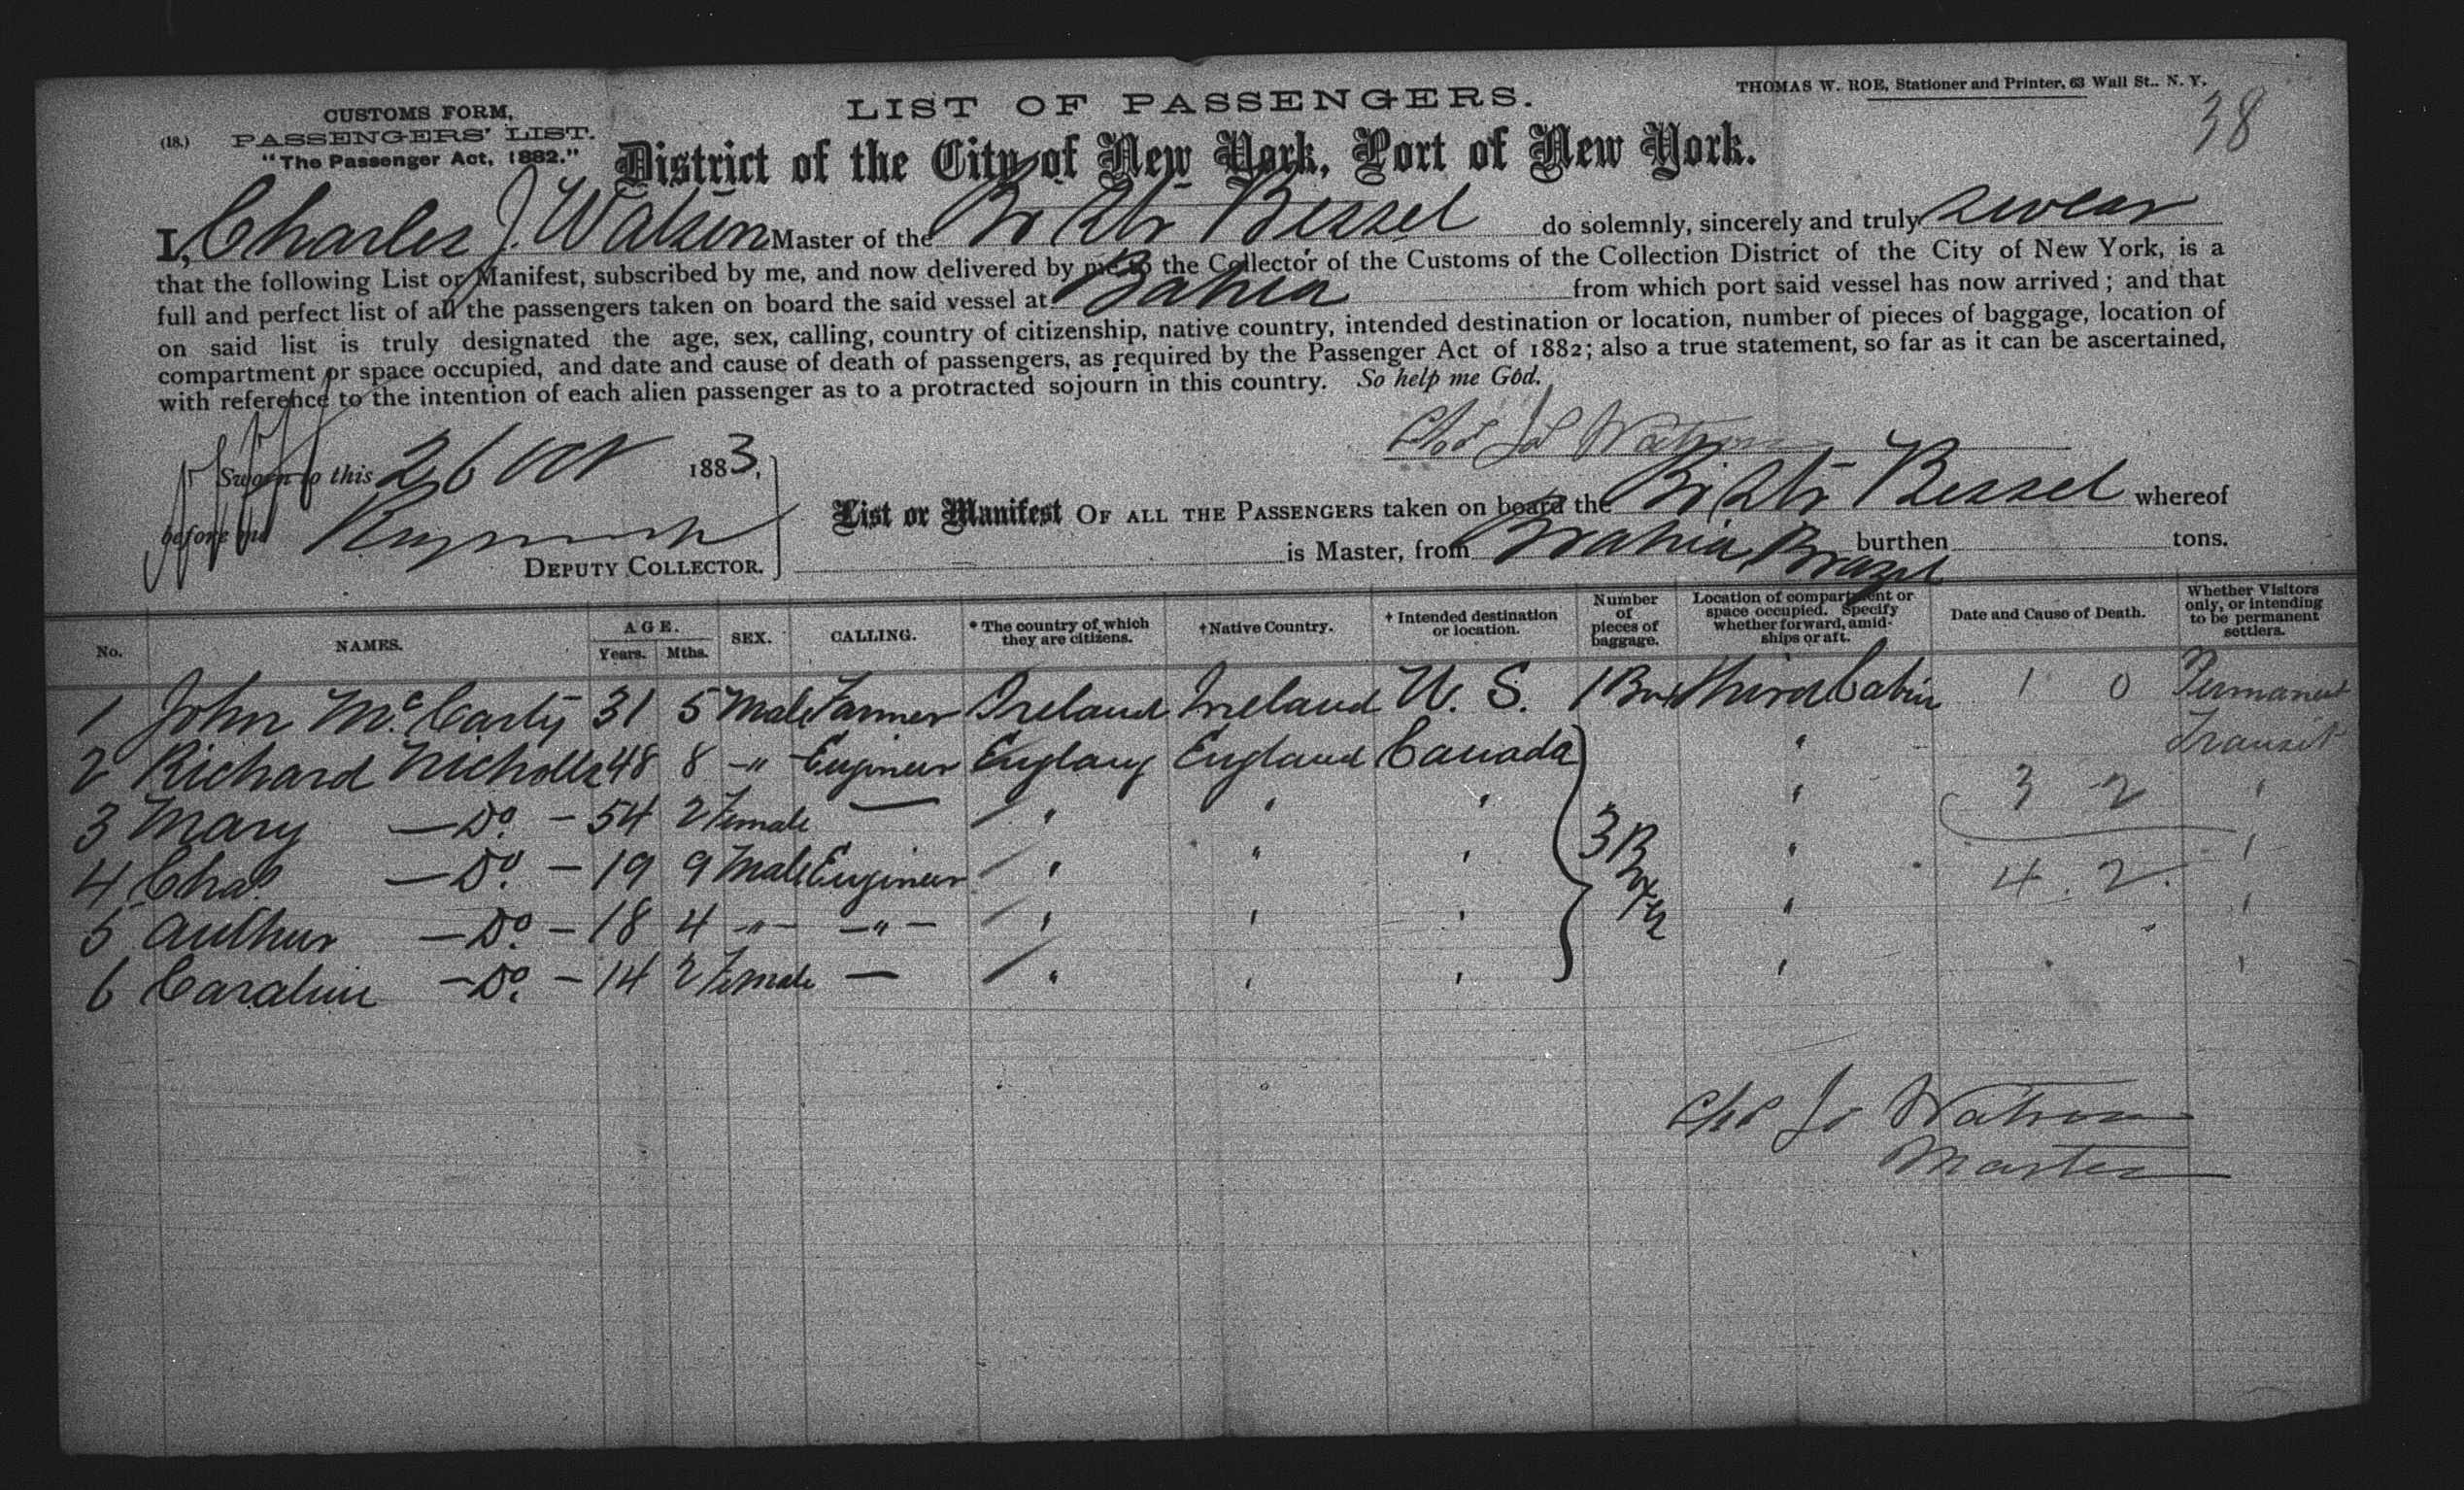 LIST OF PASSENGERS.
THOMAS W. ROE, Stationer and Printer, 63 Wall St., N. Y.
38
CUSTOMS FORM,
(18.) PASSENGERS' LIST.
"The Passenger Act, 1882."
District of the City of New York, Port of New York.
I, Charles J. Watson Master of the Br Str Bessel do solemnly, sincerely and truly swear
that the following List or Manifest, subscribed by me, and now delivered by me to the Collector of the Customs of the Collection District of the City of New York, is a
full and perfect list of all the passengers taken on board the said vessel at Bahia from which port said vessel has now arrived; and that
on said list is truly designated the age, sex, calling, country of citizenship, native country, intended destination or location, number of pieces of baggage, location of
compartment or space occupied, and date and cause of death of passengers, as required by the Passenger Act of 1882; also a true statement, so far as it can be ascertained,
with reference to the intention of each alien passenger as to a protracted sojourn in this country. So help me God.
Chas Jo Watson
Sworn to this 26 Oct 1883,
before me
DEPUTY COLLECTOR.
List or Manifest OF ALL THE PASSENGERS taken on board the Br Str Bessel whereof
is Master, from Bahia Brazil burthen tons.
No. NAMES. AGE. Years. Mths. SEX. CALLING. * The country of which they are citizens. † Native Country. † Intended destination or location. Number of pieces of baggage. Location of compartment or space occupied. Specify whether forward, amidships or aft. Date and Cause of Death. Whether Visitors only, or intending to be permanent settlers.
1 John McCarty 31 5 Male Farmer Ireland Ireland U. S. 1 Box Third Cabin 1 0 Permanent
2 Richard Nicholls 48 8 -"- Engineer England England Canada " Transit
3 Mary — Do. — 54 2 Female — " " " " 3 2 "
4 Chas. — Do. — 19 9 Male Engineer " " " 3 Boxes " 4 2 "
5 Authur — Do. — 18 4 -"- -"- " " " " "
6 Caraline — Do. — 14 2 Female — " " " " "
Chas Jo Watson
Master